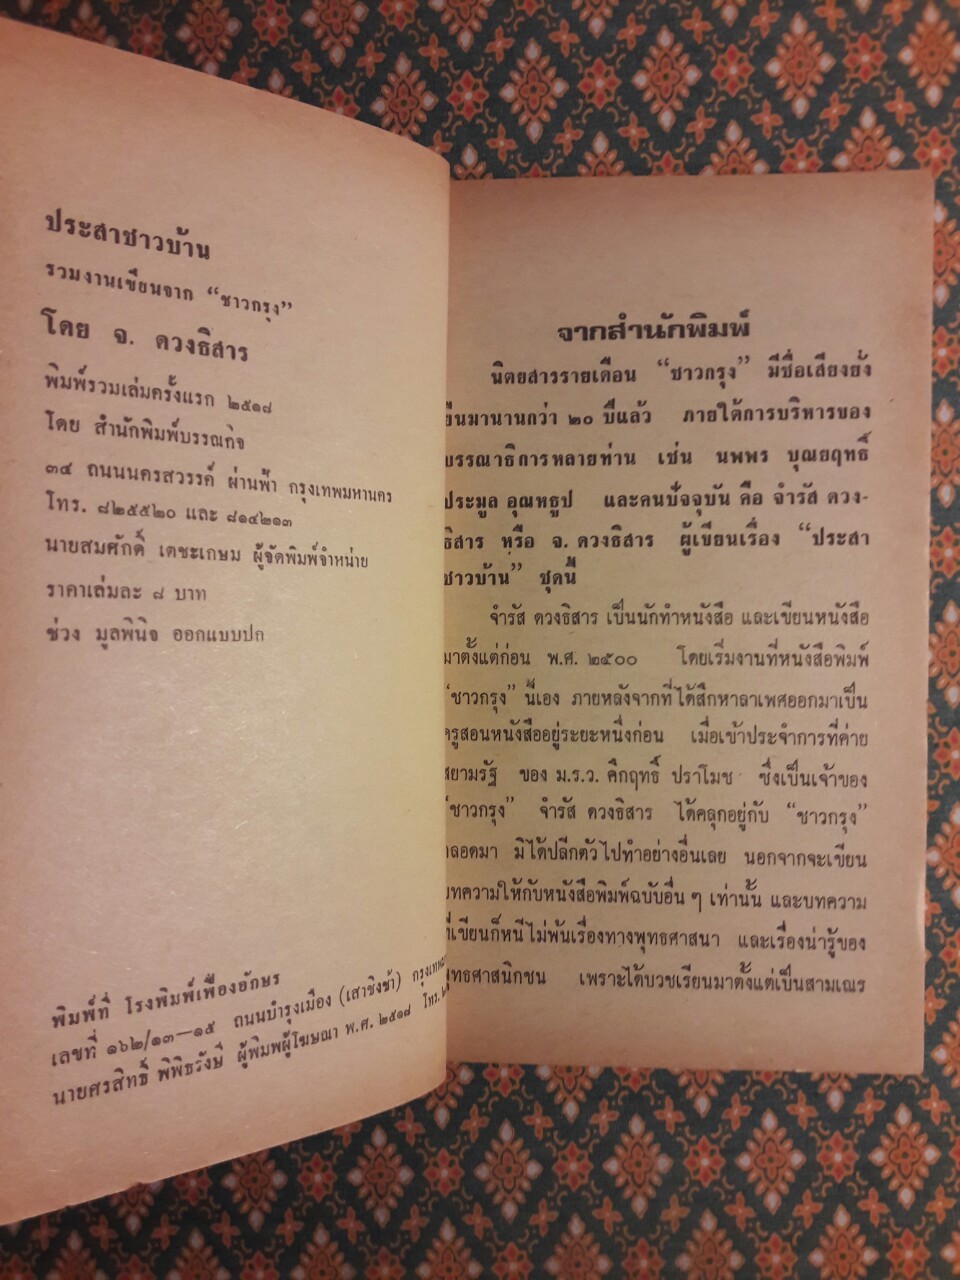 ประสาชาวบ้าน
รวมงานเขียนจาก “ชาวกรุง”
โดย จ. ดวงธิสาร
พิมพ์รวมเล่มครั้งแรก ๒๕๑๘
โดย สำนักพิมพ์บรรณกิจ
๓๔ ถนนนครสวรรค์ ผ่านฟ้า กรุงเทพมหานคร
โทร. ๘๒๕๕๒๐ และ ๘๑๔๒๑๓
นายสมศักดิ์ เตชะเกษม ผู้จัดพิมพ์จำหน่าย
ราคาเล่มละ ๘ บาท
ช่วง มูลพินิจ ออกแบบปก
พิมพ์ที่ โรงพิมพ์เฟื่องอักษร
เลขที่ ๑๖๒/๑๓—๑๕ ถนนบำรุงเมือง (เสาชิงช้า)
นายศรสิทธิ์ พิพิธรังษี ผู้พิมพ์ผู้โฆษณา พ.ศ. ๒๕๑๘ โทร.
จากสำนักพิมพ์
นิตยสารรายเดือน “ชาวกรุง” มีชื่อเสียงยั่ง
ยืนมานานกว่า ๒๐ ปีแล้ว ภายใต้การบริหารของ
บรรณาธิการหลายท่าน เช่น นพพร บุณยฤทธิ์
ประมูล อุณหธูป และคนปัจจุบัน คือ จำรัส ดวง-
ธิสาร หรือ จ. ดวงธิสาร ผู้เขียนเรื่อง “ประสา
ชาวบ้าน” ชุดนี้
จำรัส ดวงธิสาร เป็นนักทำหนังสือ และเขียนหนังสือ
มาตั้งแต่ก่อน พ.ศ. ๒๕๐๐ โดยเริ่มงานที่หนังสือพิมพ์
“ชาวกรุง” นี้เอง ภายหลังจากที่ได้สึกหาลาเพศออกมาเป็น
ครูสอนหนังสืออยู่ระยะหนึ่งก่อน เมื่อเข้าประจำการที่ค่าย
สยามรัฐ ของ ม.ร.ว. คึกฤทธิ์ ปราโมช ซึ่งเป็นเจ้าของ
“ชาวกรุง” จำรัส ดวงธิสาร ได้คลุกอยู่กับ “ชาวกรุง”
ตลอดมา มิได้ปลีกตัวไปทำอย่างอื่นเลย นอกจากจะเขียน
บทความให้กับหนังสือพิมพ์ฉบับอื่น ๆ เท่านั้น และบทความ
ที่เขียนก็หนีไม่พ้นเรื่องทางพุทธศาสนา และเรื่องน่ารู้ของ
พุทธศาสนิกชน เพราะได้บวชเรียนมาตั้งแต่เป็นสามเณร